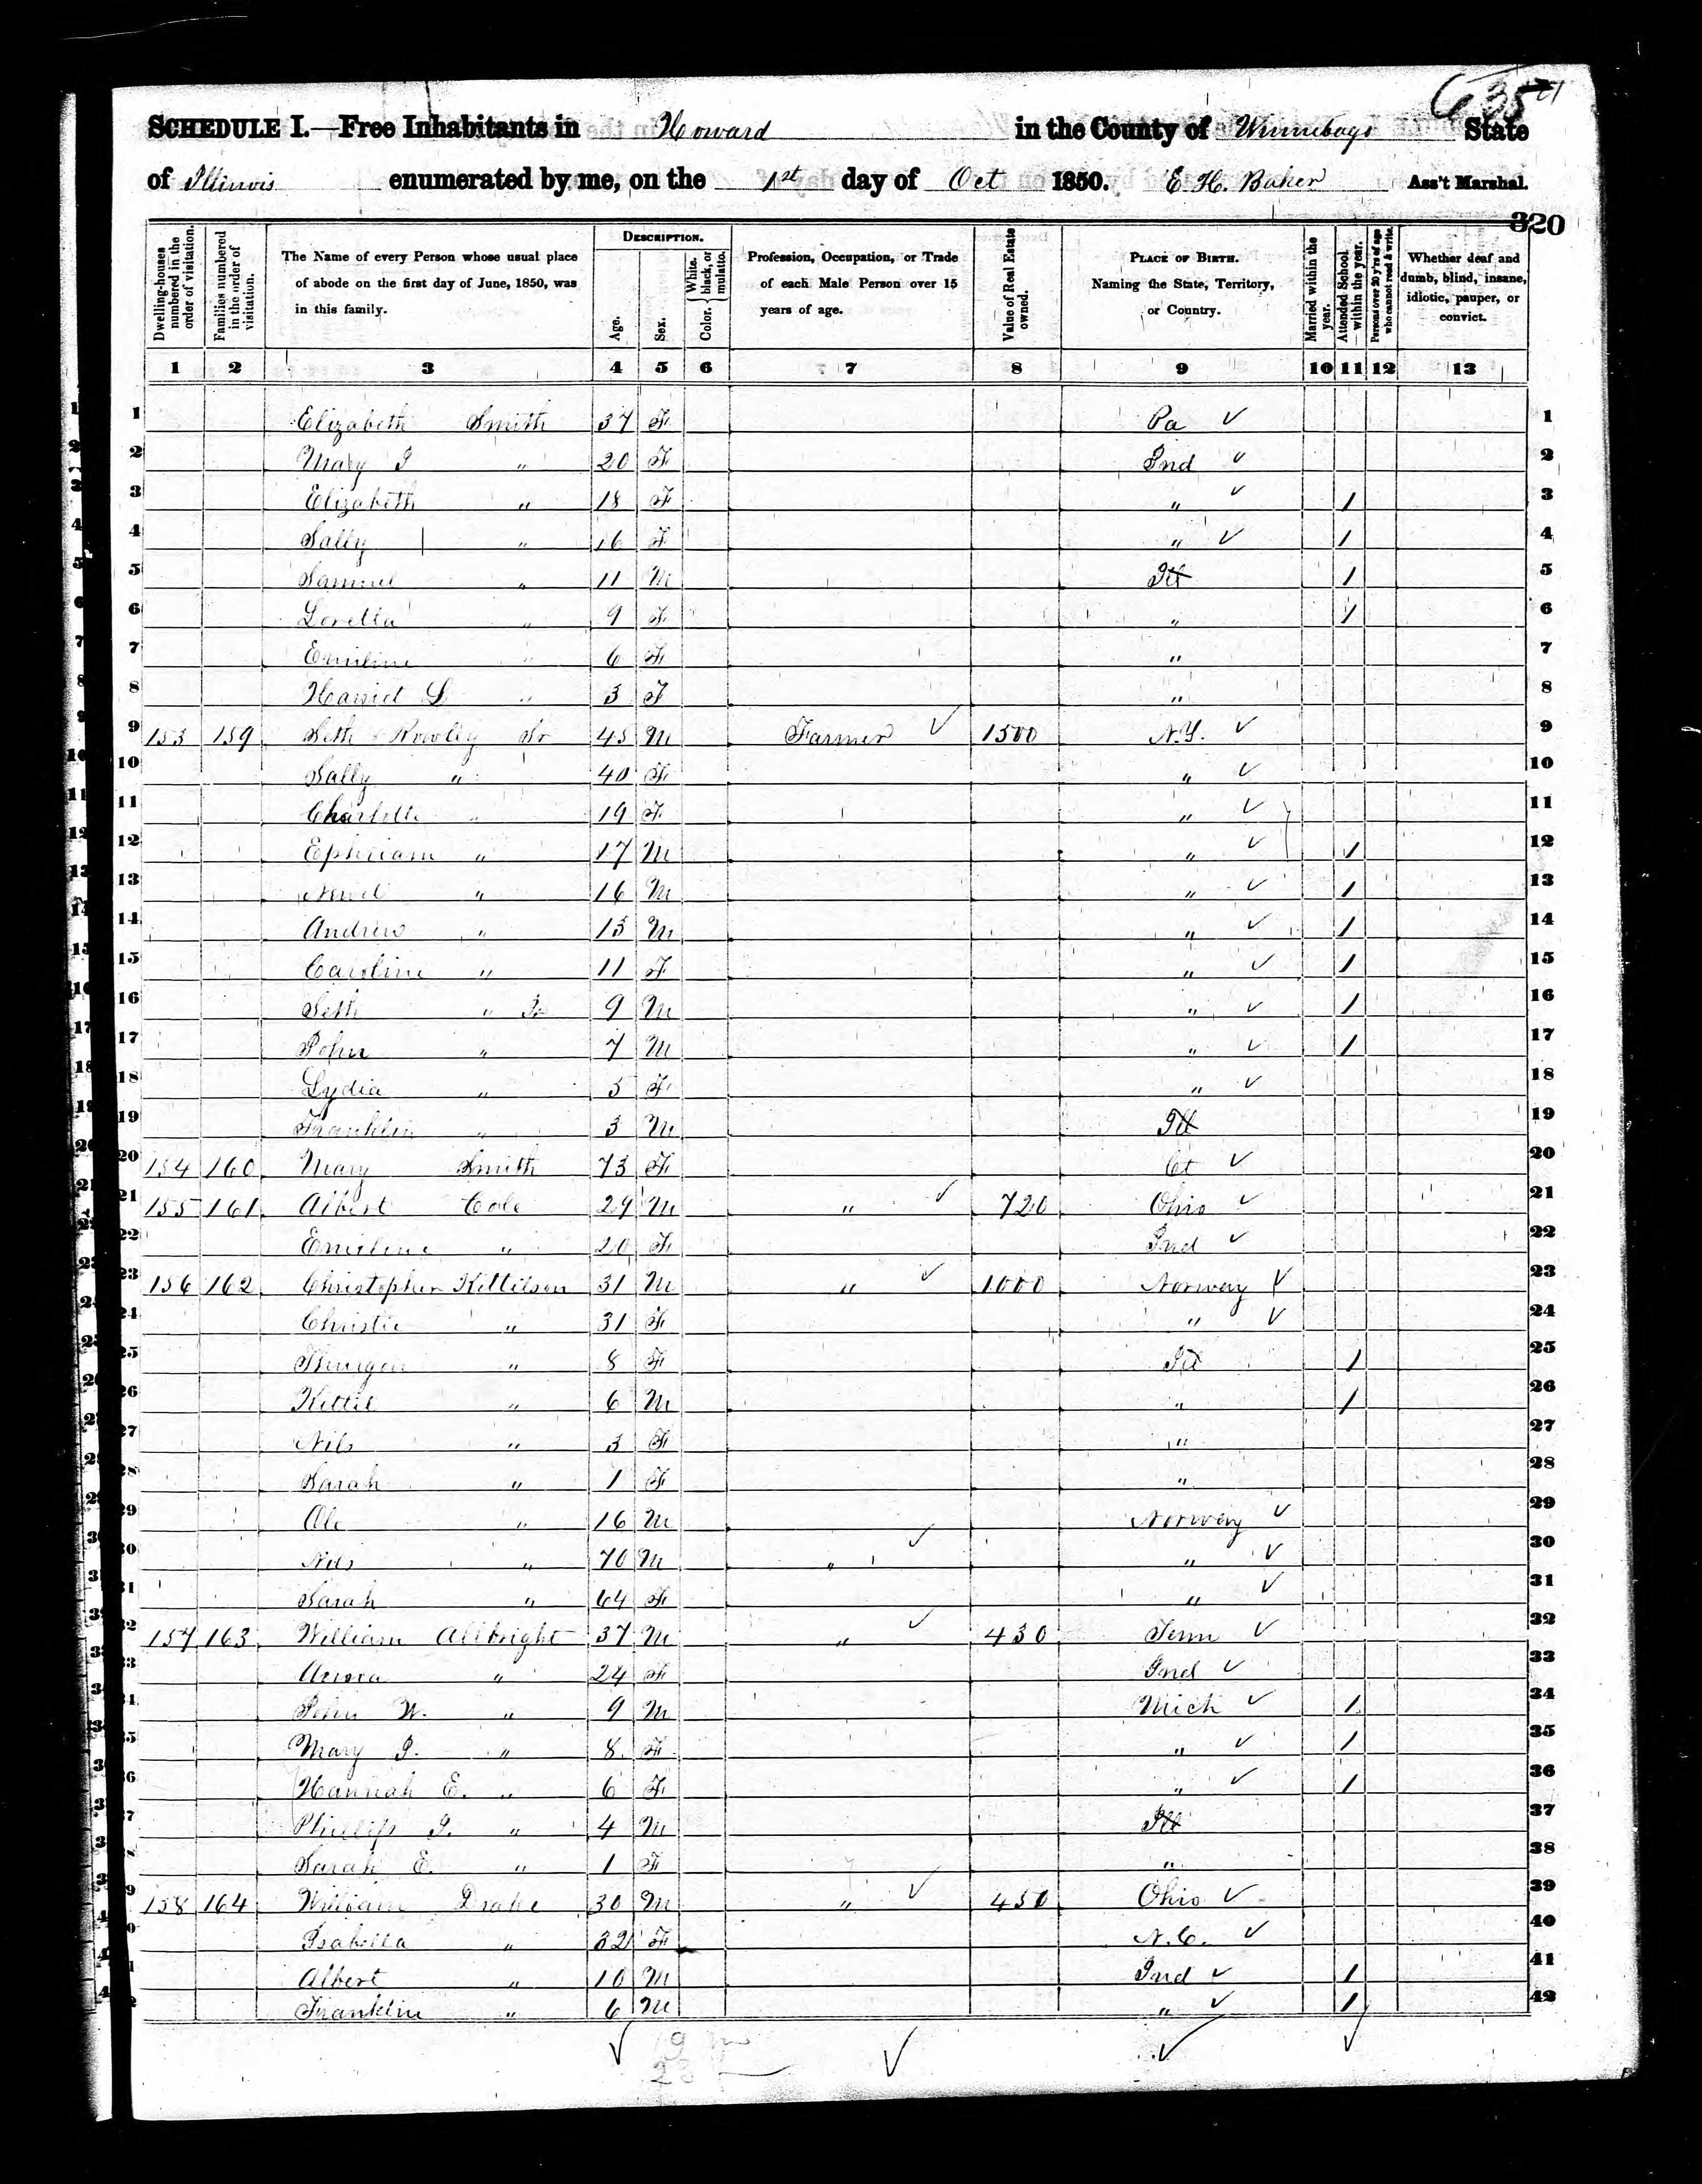 635
SCHEDULE I.—Free Inhabitants in Howard in the County of Winnebago State
of Illinois enumerated by me, on the 1st day of Oct 1850. E. H. Baker Ass't Marshal.
320
Dwelling-houses numbered in the order of visitation.
Families numbered in the order of visitation.
The Name of every Person whose usual place of abode on the first day of June, 1850, was in this family.
DESCRIPTION.
Age.
Sex.
Color. { White, black, or mulatto.
Profession, Occupation, or Trade of each Male Person over 15 years of age.
Value of Real Estate owned.
PLACE OF BIRTH. Naming the State, Territory, or Country.
Married within the year.
Attended School within the year.
Persons over 20 y'rs of age who cannot read & write.
Whether deaf and dumb, blind, insane, idiotic, pauper, or convict.
1 2 3 4 5 6 7 8 9 10 11 12 13
1 Elizabeth Smith 37 F Pa ✓ 1
2 Mary J " 20 F Ind ✓ 2
3 Elizabeth " 18 F " ✓ / 3
4 Sally " 16 F " ✓ / 4
5 Samuel " 11 M Ill / 5
6 Loretta " 9 F " / 6
7 Emiline " 6 F " 7
8 Harriet L " 3 F " 8
9 153 159 Seth Rowley Sr 45 M Farmer ✓ 1500 N.Y. ✓ 9
10 Sally " 40 F " ✓ 10
11 Charlotte " 19 F " ✓ 11
12 Ephriam " 17 M " ✓ / 12
13 " 16 M " ✓ / 13
14 Andrew " 13 M " ✓ / 14
15 Caroline " 11 F " ✓ / 15
16 Seth " Jr 9 M " ✓ / 16
17 John " 7 M " ✓ / 17
18 Lydia " 5 F " ✓ 18
19 Franklin " 3 M Ill 19
20 154 160 Mary Smith 73 F Ct ✓ 20
21 155 161 Albert Cole 29 M " ✓ 720 Ohio ✓ 21
22 Emiline " 20 F Ind ✓ 22
23 156 162 Christopher Kittilson 31 M " ✓ 1000 Norway ✓ 23
24 Christie " 31 F " ✓ 24
25 " 8 F Ill / 25
26 Kittil " 6 M " / 26
27 Nils " 3 F " 27
28 Sarah " 1 F " 28
29 Ole " 16 M Norway ✓ 29
30 Nils " 70 M " ✓ " ✓ 30
31 Sarah " 64 F " ✓ 31
32 157 163 William Allbright 37 M " ✓ 430 Tenn ✓ 32
33 " 24 F Ind ✓ 33
34 John W. " 9 M Mich ✓ / 34
35 Mary J. " 8 F " ✓ / 35
36 Hannah E. " 6 F " ✓ / 36
37 Phillip J. " 4 M Ill 37
38 Sarah E. " 1 F " 38
39 158 164 William Drake 30 M " ✓ 450 Ohio ✓ 39
40 Isabella " 32 F N.C. ✓ 40
41 Albert " 10 M Ind ✓ / 41
42 Franklin " 6 M " ✓ / 42
19 m
23 f